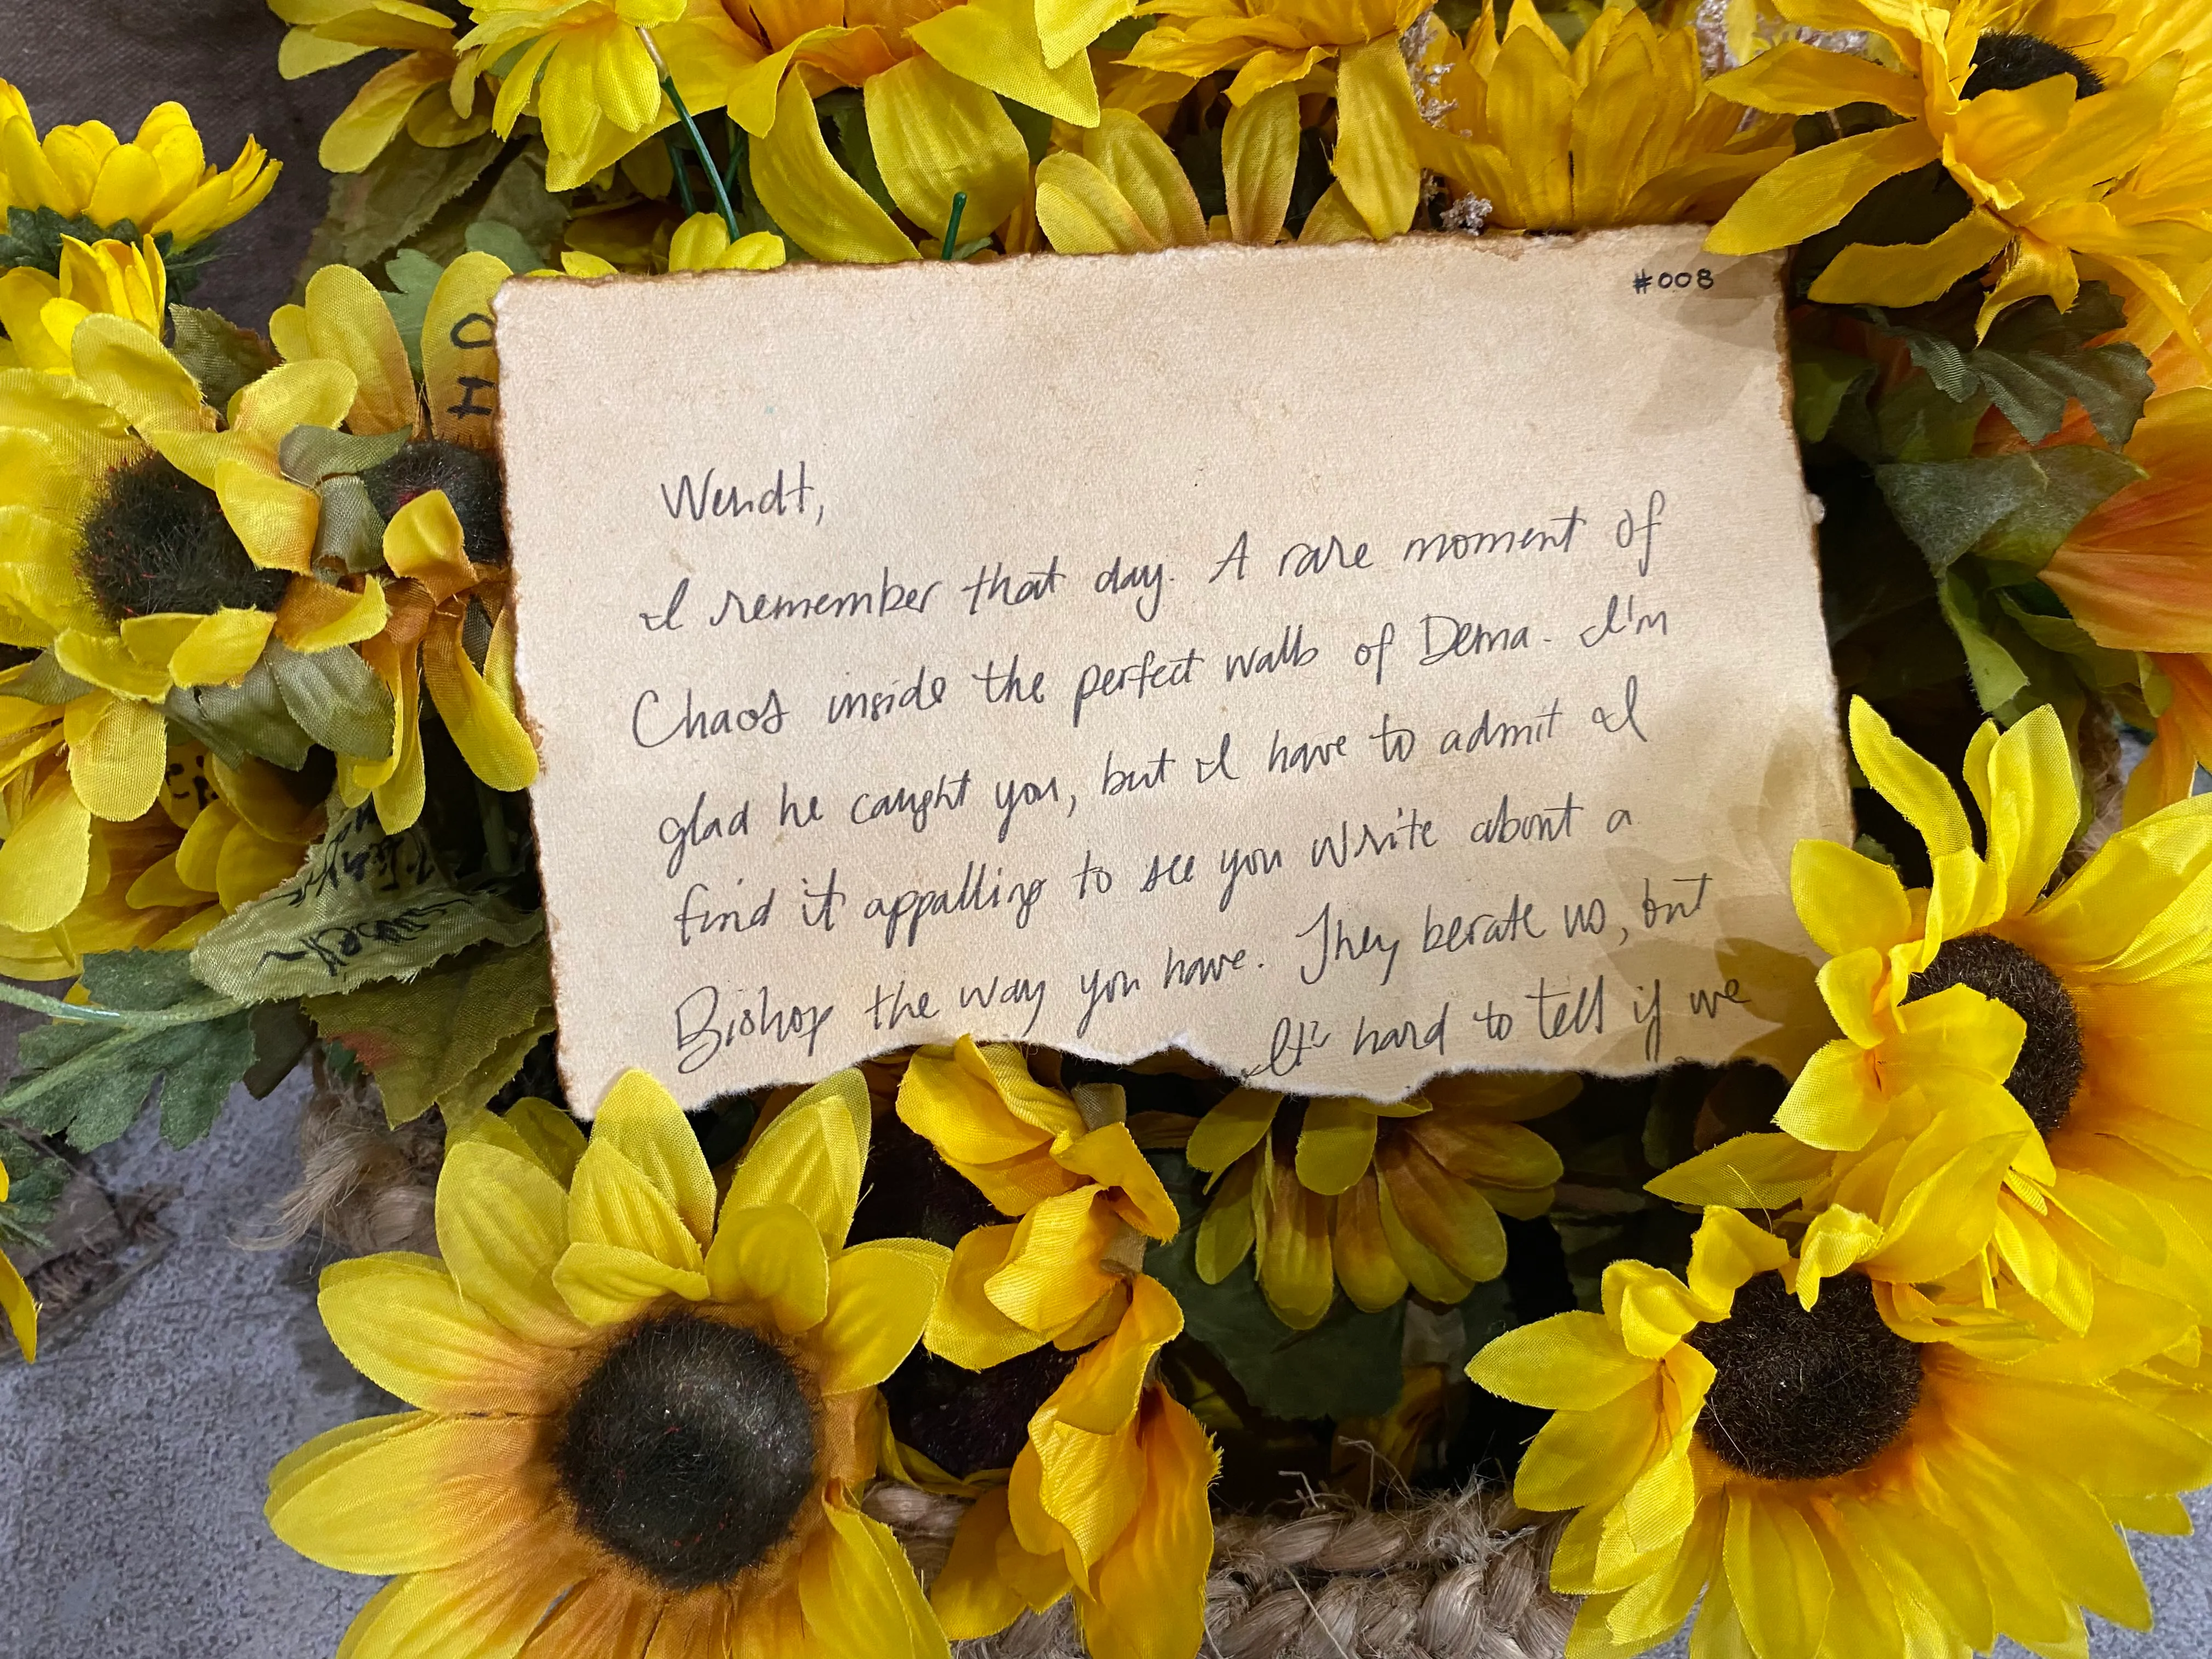 #008
Wendt,
I remember that day. A rare moment of
Chaos inside the perfect walls of Dema. I'm
glad he caught you, but I have to admit I
find it appalling to see you write about a
Bishop the way you have. They berate us, but
It's hard to tell if we
OH